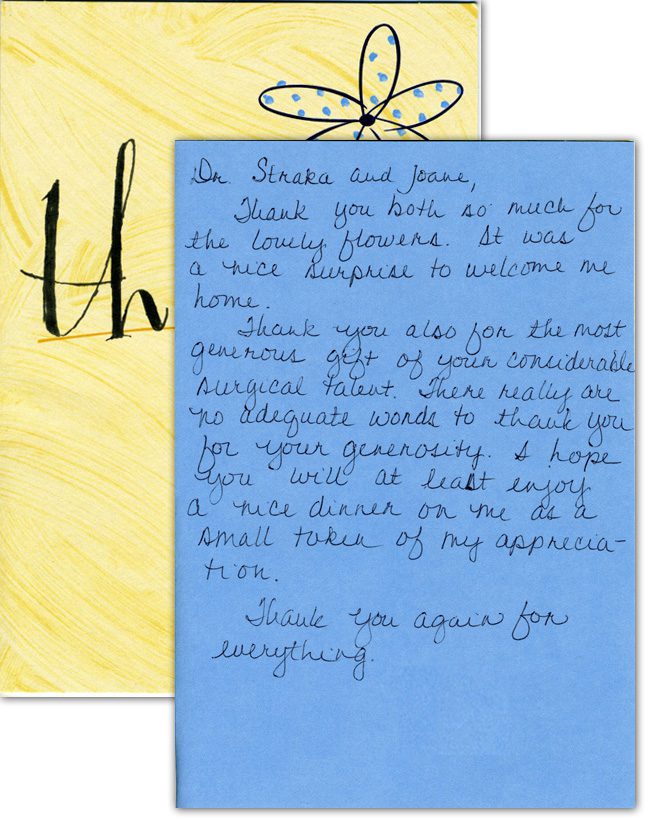 th
Dr. Straka and Joane,
Thank you both so much for
the lovely flowers. It was
a nice surprise to welcome me
home.
Thank you also for the most
generous gift of your considerable
surgical talent. There really are
no adequate words to thank you
for your generosity. I hope
you will at least enjoy
a nice dinner on me as a
small token of my apprecia-
tion.
Thank you again for
everything.